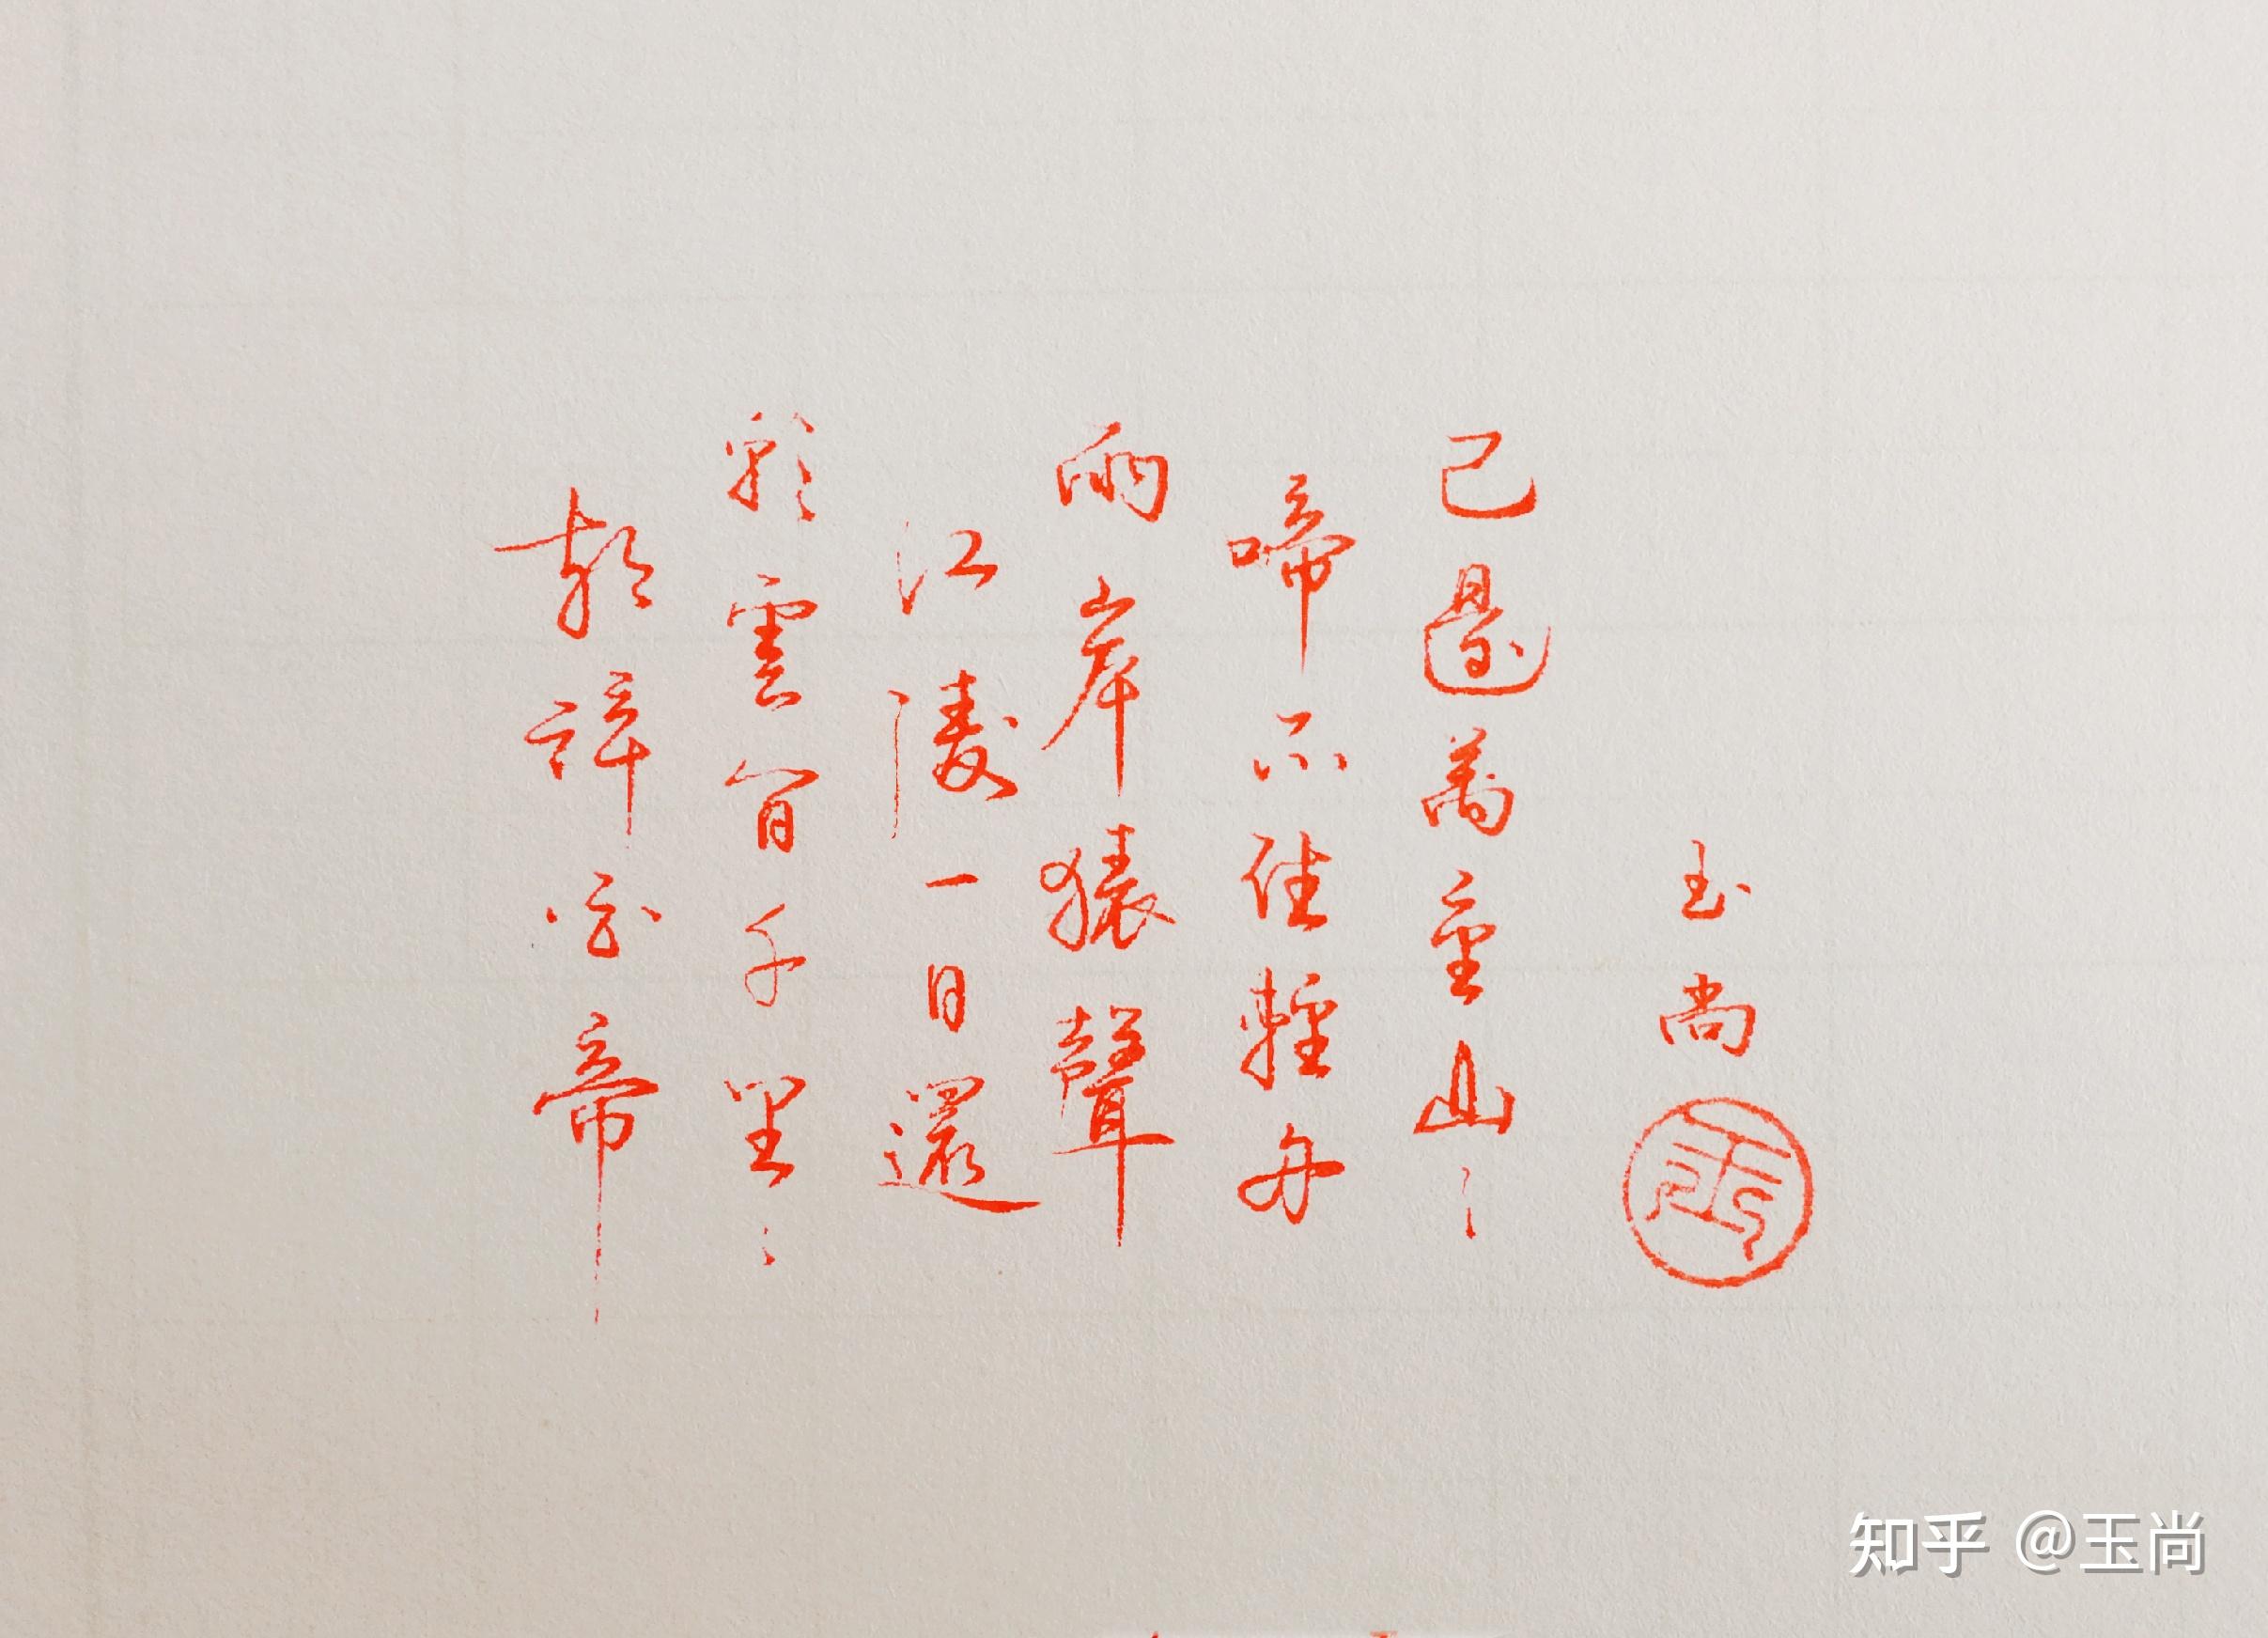 朝辭白帝
彩雲間千里
江陵一日還
兩岸猿聲
啼不住輕舟
已過萬重山
玉尚
知乎 @玉尚